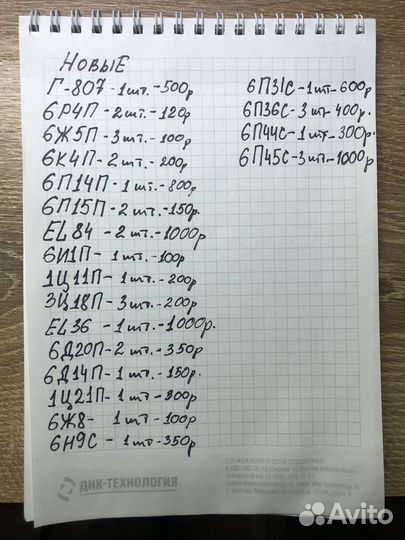 НОВЫЕ
Г-807-1шт.-500р
6Р4П-2шт.-120р
6Ж5П-3шт.-100р
6К4П-2шт.-200р
6П14П-1шт.-800р
6П15П-2шт.-150р.
EL84-2шт.-1000р
6И1П-1шт.-100р
1Ц11П-1шт.-200р
3Ц18П-3шт.-200р
EL36-1шт.-1000р.
6Д20П-2шт.-350р
6Д14П-1шт.-150р.
1Ц21П-1шт-300р
6Ж8-1шт-100р
6Н9С-1шт-350р
6П31С-1шт-600р
6П36С-3шт-400р.
6П44С-1шт-300р.
6П45С-3шт-1000р
СЛУЖБА КЛИЕНТСКОЙ ПОДДЕРЖКИ:
ДНК-ТЕХНОЛОГИЯ
Avito